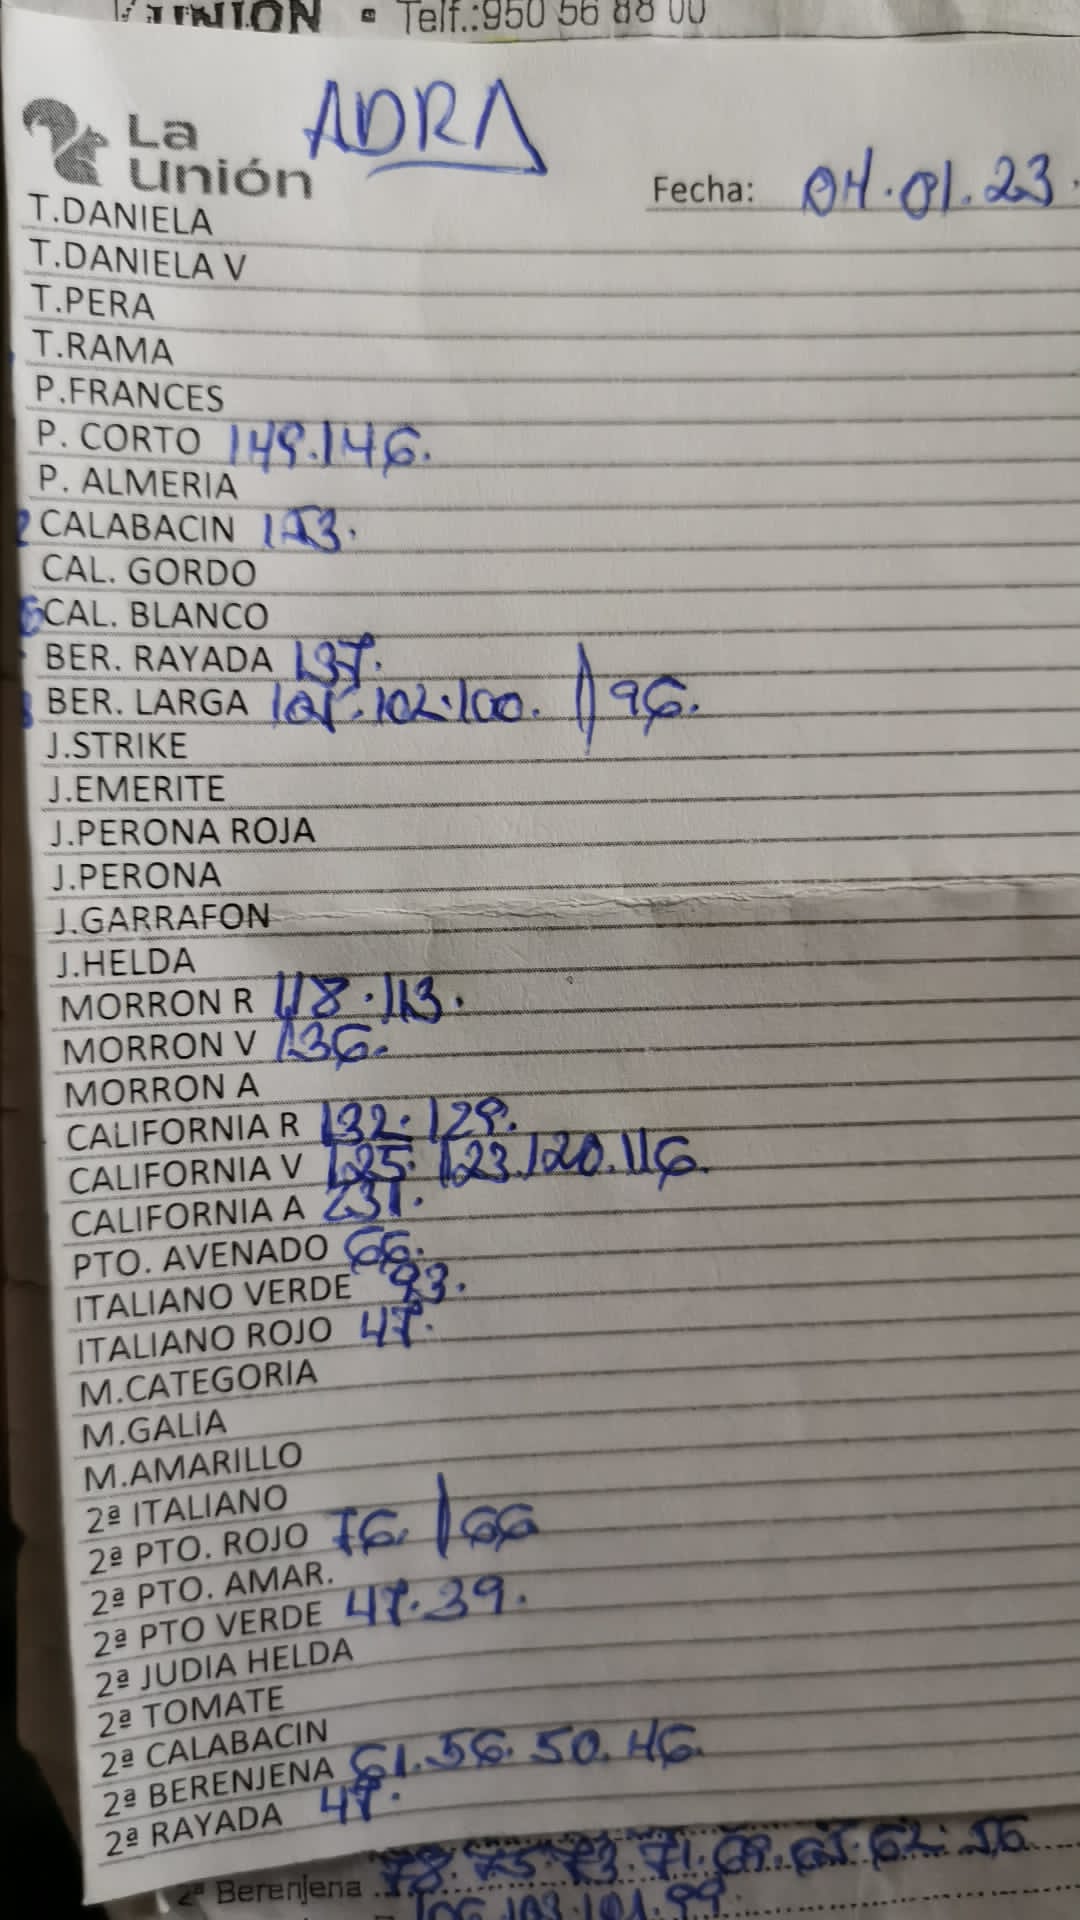 UNION • Telf.:950 56 88 00
ADRA
La
Unión
Fecha: 04.01.23.
T.DANIELA
T.DANIELA V
T.PERA
T.RAMA
P.FRANCES
P. CORTO 149.146.
P. ALMERIA
CALABACIN 153.
CAL. GORDO
CAL. BLANCO
BER. RAYADA 137.
BER. LARGA 102.100. | 96.
J.STRIKE
J.EMERITE
J.PERONA ROJA
J.PERONA
J.GARRAFON
J.HELDA
MORRON R 118.113.
MORRON V 136.
MORRON A
CALIFORNIA R 132.129.
CALIFORNIA V 125.123.120.116.
CALIFORNIA A
PTO. AVENADO 66.
ITALIANO VERDE 93.
ITALIANO ROJO 47.
M.CATEGORIA
M.GALIA
M.AMARILLO
2ª ITALIANO
2ª PTO. ROJO 76. | 66
2ª PTO. AMAR.
2ª PTO VERDE 47.39.
2ª JUDIA HELDA
2ª TOMATE
2ª CALABACIN
2ª BERENJENA 61.56.50.46.
2ª RAYADA 47.
2ª Berenjena 78.75.73.71.69.65.62.56
106.103.101.99